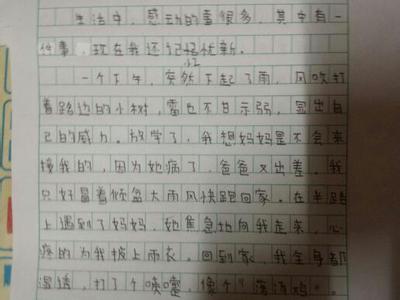 生活中,感动的事很多,其中有一
件事,现在我还记忆犹新。
一个下午,突然下起了雨,风吹打
着路边的小树,雷也不甘示弱,显出自
己的威力。放学了,我想妈妈是不会来
接我的,因为她病了,爸爸又出差。我
只好冒着倾盆大雨风快跑回家。在半路
上遇到了妈妈,她焦急地向我走来,心
疼的为我披上雨衣。回到家,我全身都
湿透,打了个喷嚏,像个“落汤鸡”。